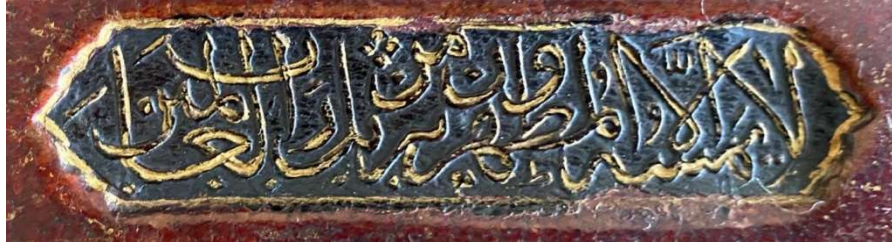 لا يمسه الا المطهرون تنزيل من رب العالمين